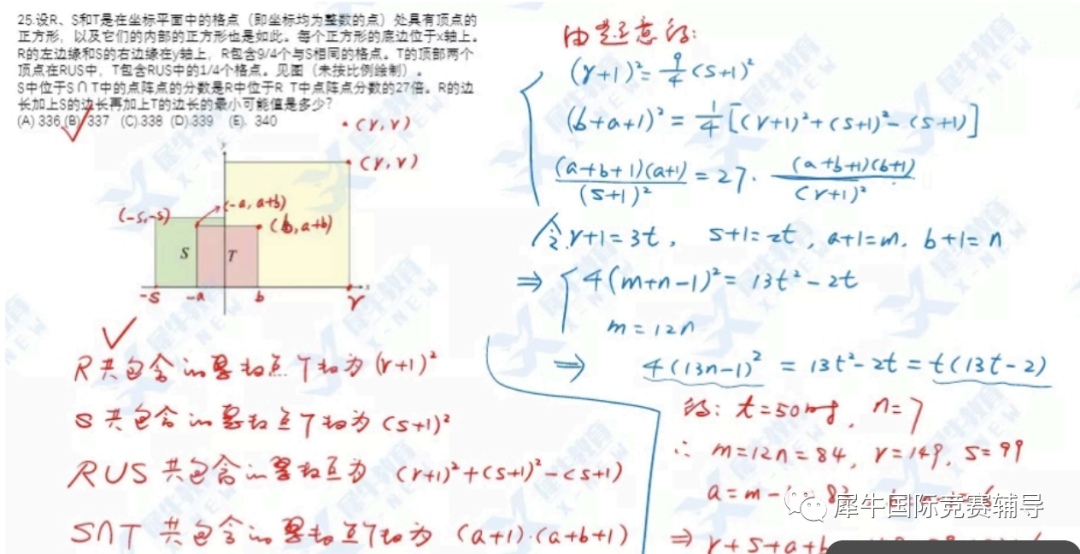 25.设R、S和T是在坐标平面中的格点（即坐标均为整数的点）处具有顶点的
正方形，以及它们的内部的正方形也是如此。每个正方形的底边位于x轴上。
R的左边缘和S的右边缘在y轴上，R包含9/4个与S相同的格点。T的顶部两个
顶点在RUS中，T包含RUS中的1/4个格点。见图（未按比例绘制）。
S中位于S∩T中的点阵点的分数是R中位于R T中点阵点分数的27倍。R的边
长加上S的边长再加上T的边长的最小可能值是多少？
(A) 336 (B) 337 (C).338 (D).339 (E). 340
(r, r)
(r, r)
(-a, a+b)
(-s, -s)
(b, a+b)
S
T
y
x
-s
-a
b
r
R共包含
(r+1)²
S共包含
(s+1)²
RUS共包含
(r+1)²+(s+1)²-(s+1)
S∩T共包含
(a+1)·(a+b+1)
由题意得:
(r+1)²=9/4(s+1)²
(b+a+1)²=1/4[(r+1)²+(s+1)²-(s+1)]
(a+b+1)(a+1)/(s+1)²=27·(a+b+1)(b+1)/(r+1)²
令r+1=3t, s+1=2t, a+1=m, b+1=n
⇒ 4(m+n-1)²=13t²-2t
m=12n
⇒ 4(13n-1)²=13t²-2t=t(13t-2)
得: t=50时, n=7
∴ m=12n=84, r=149, s=99
a=m-
⇒ r+s+a+b
犀牛国际竞赛辅导
犀牛教育
X-NEW